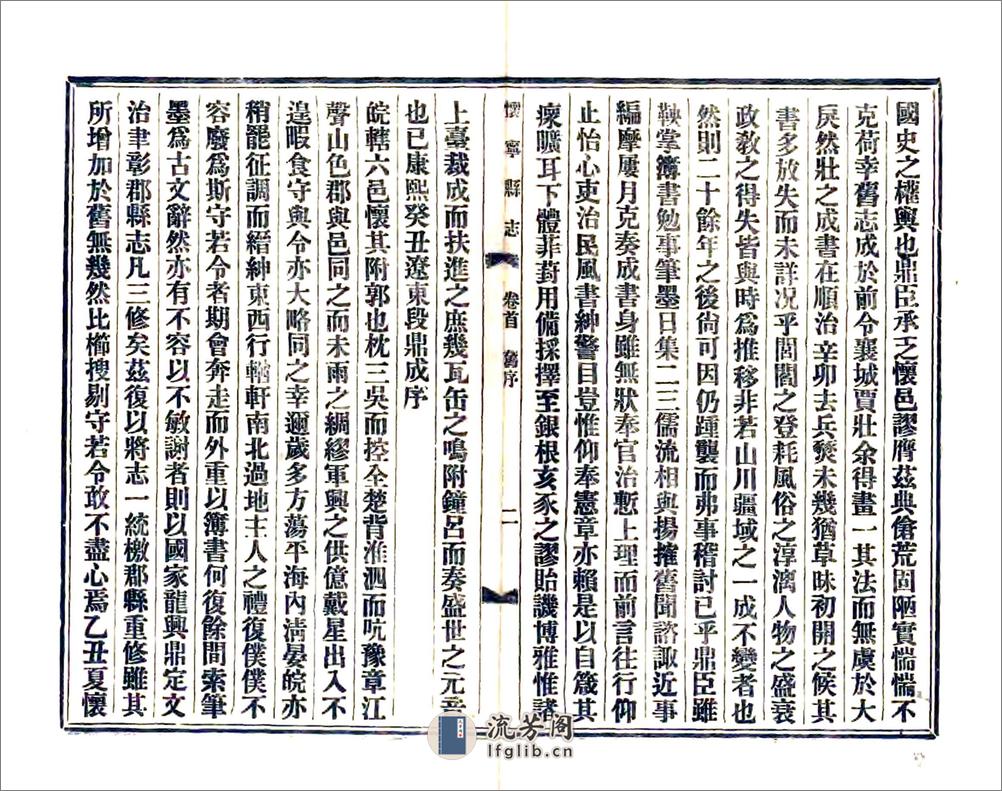 國史之權輿也鼎臣承乏懷邑謬膺茲典傖荒固陋實惴惴不
克荷幸舊志成於前令襄城賈壯余得畫一其法而無虞於大
戾然壯之成書在順治辛卯去兵燹未幾猶草昧初開之候其
書多放失而未詳況乎閭閻之登耗風俗之淳漓人物之盛衰
政敎之得失皆與時爲推移非若山川疆域之一成不變者也
然則二十餘年之後尙可因仍踵襲而弗事稽討已乎鼎臣雖
鞅掌簿書勉事筆墨日集二三儒流相與揚搉舊聞諮諏近事
編摩屢月克奏成書身雖無狀奉官治慙上理而前言往行仰
止怡心吏治民風書紳警目豈惟仰奉憲章亦賴是以自箴其
瘝曠耳下體菲葑用備採擇至銀根亥豕之謬貽譏博雅惟諸
懷寧縣志
卷首
舊序
二
上臺裁成而扶進之庶幾瓦缶之鳴附鐘呂而奏盛世之元音
也已康熙癸丑遼東段鼎成序
皖轄六邑懷其附郭也枕三吳而控全楚背淮泗而吭豫章江
聲山色郡與邑同之而未雨之綢繆軍興之供億戴星出入不
遑暇食守與令亦大略同之幸邇歲多方蕩平海內淸晏皖亦
稍罷征調而縉紳東西行輶軒南北過地主人之禮復僕僕不
容廢爲斯守若令者期會奔走而外重以簿書何復餘閒索筆
墨爲古文辭然亦有不容以不敏謝者則以國家龍興鼎定文
治聿彰郡縣志凡三修矣茲復以將志一統檄郡縣重修雖其
所增加於舊無幾然比櫛搜剔守若令敢不盡心焉乙丑夏懷
流芳阁
lfglib.cn